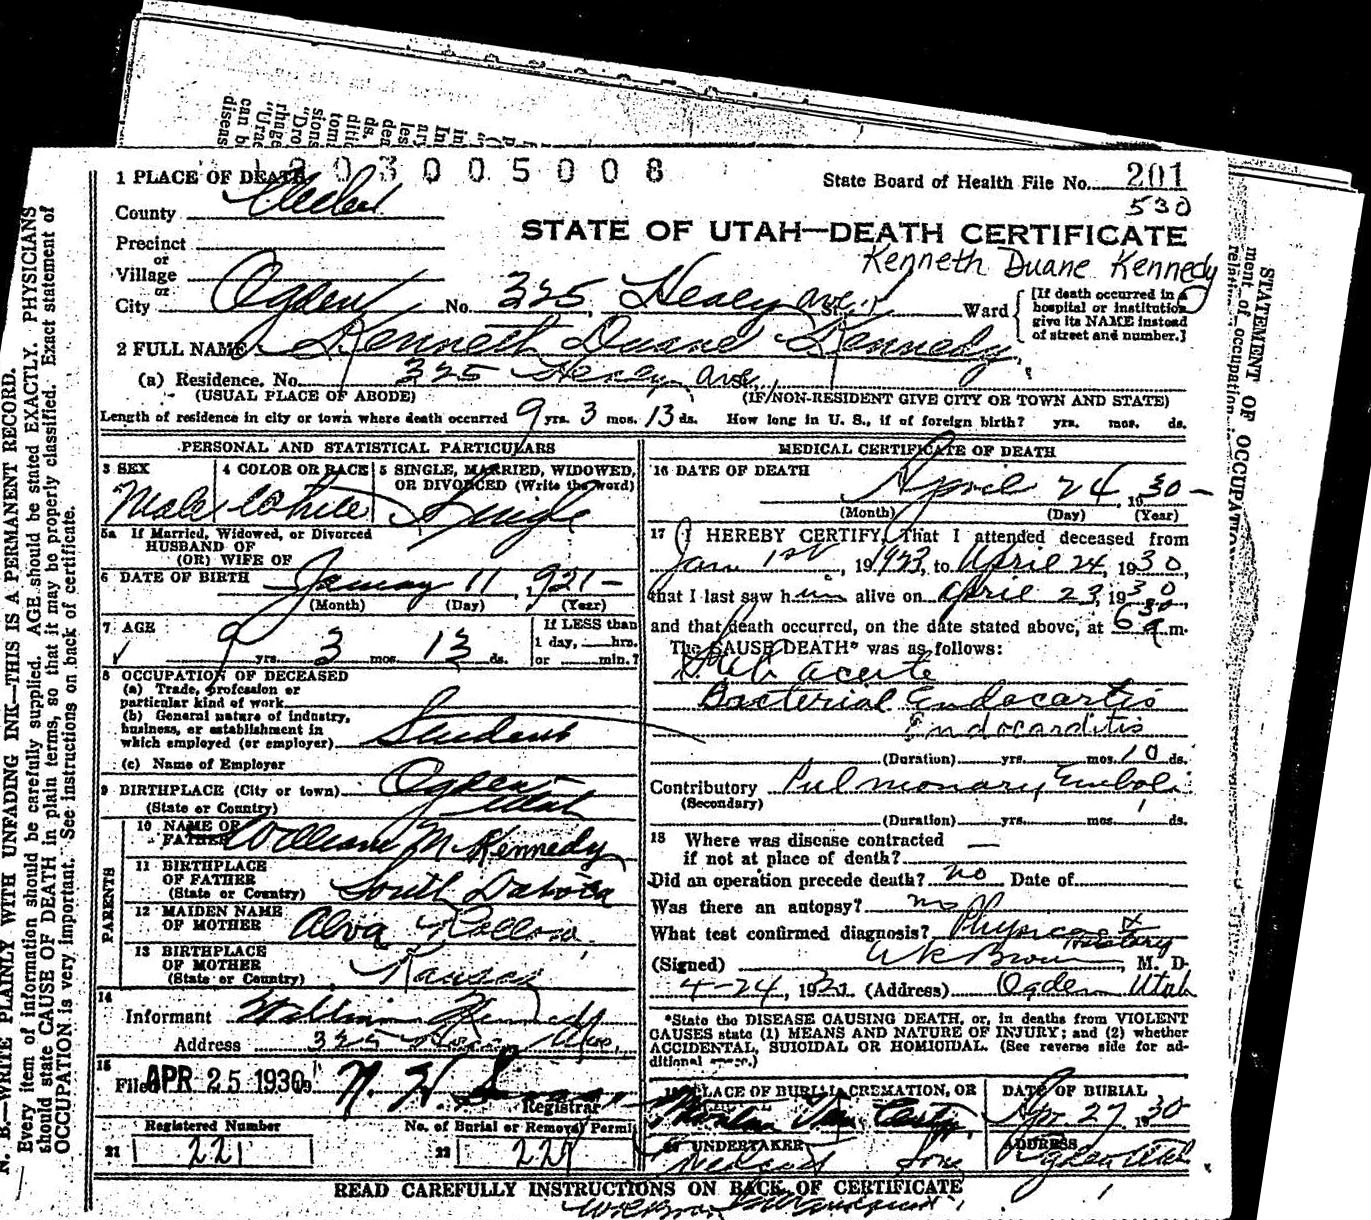 1203005008
1 PLACE OF DEATH
State Board of Health File No. 201
530
County
STATE OF UTAH—DEATH CERTIFICATE
Precinct
Kenneth Duane Kennedy
or
Village
or
City Ogden No. 325 Healy Ave. St. Ward
[If death occurred in a
hospital or institution
give its NAME instead
of street and number.]
2 FULL NAME Kenneth Duane Kennedy
(a) Residence. No. 325 Healy Ave.
(USUAL PLACE OF ABODE) (IF NON-RESIDENT GIVE CITY OR TOWN AND STATE)
Length of residence in city or town where death occurred 9 yrs. 3 mos. 13 ds. How long in U. S., if of foreign birth? yrs. mos. ds.
PERSONAL AND STATISTICAL PARTICULARS
3 SEX
Male
4 COLOR OR RACE
White
5 SINGLE, MARRIED, WIDOWED,
OR DIVORCED (Write the word)
Single
5a If Married, Widowed, or Divorced
HUSBAND OF
(OR) WIFE OF
6 DATE OF BIRTH January 11, 1921
(Month) (Day) (Year)
7 AGE
9 yrs. 3 mos. 13 ds.
If LESS than
1 day, hrs.
or min.?
8 OCCUPATION OF DECEASED
(a) Trade, profession or
particular kind of work
(b) General nature of industry,
business, or establishment in
which employed (or employer) Student
(c) Name of Employer
9 BIRTHPLACE (City or town) Ogden
(State or Country) Utah
PARENTS
10 NAME OF
FATHER William M Kennedy
11 BIRTHPLACE
OF FATHER
(State or Country) South Dakota
12 MAIDEN NAME
OF MOTHER Alva
13 BIRTHPLACE
OF MOTHER
(State or Country) Kansas
14
Informant William Kennedy
Address 325
15
Filed APR 25 1930
Registrar
Registered Number
21 221
No. of Burial or Removal Permit
22 227
MEDICAL CERTIFICATE OF DEATH
16 DATE OF DEATH
April 24, 1930
(Month) (Day) (Year)
17 I HEREBY CERTIFY, That I attended deceased from
Jan 1st, 1923, to April 24, 1930,
that I last saw him alive on April 23, 1930,
and that death occurred, on the date stated above, at 6 30 a m.
The CAUSE DEATH* was as follows:
Sub acute
Bacterial Endocartis
Endocarditis
(Duration) yrs. mos. 10 ds.
Contributory Pulmonary Emboli
(Secondary)
(Duration) yrs. mos. 1 ds.
18 Where was disease contracted
if not at place of death? —
Did an operation precede death? no Date of
Was there an autopsy? no
What test confirmed diagnosis? Physical & History
(Signed) M. D.
4-24, 19 (Address) Ogden Utah
*State the DISEASE CAUSING DEATH, or, in deaths from VIOLENT
CAUSES state (1) MEANS AND NATURE OF INJURY; and (2) whether
ACCIDENTAL, SUICIDAL OR HOMICIDAL. (See reverse side for ad-
ditional
PLACE OF BURIAL, CREMATION, OR
DATE OF BURIAL
Apr. 27, 1930
UNDERTAKER
Sons
ADDRESS
Ogden Utah
READ CAREFULLY INSTRUCTIONS ON BACK OF CERTIFICATE
N. B.—WRITE PLAINLY WITH UNFADING INK—THIS IS A PERMANENT RECORD.
Every item of information should be carefully supplied. AGE should be stated EXACTLY. PHYSICIANS
should state CAUSE OF DEATH in plain terms, so that it may be properly classified. Exact statement of
OCCUPATION is very important. See instructions on back of certificate.
STATEMENT OF OCCUPATION